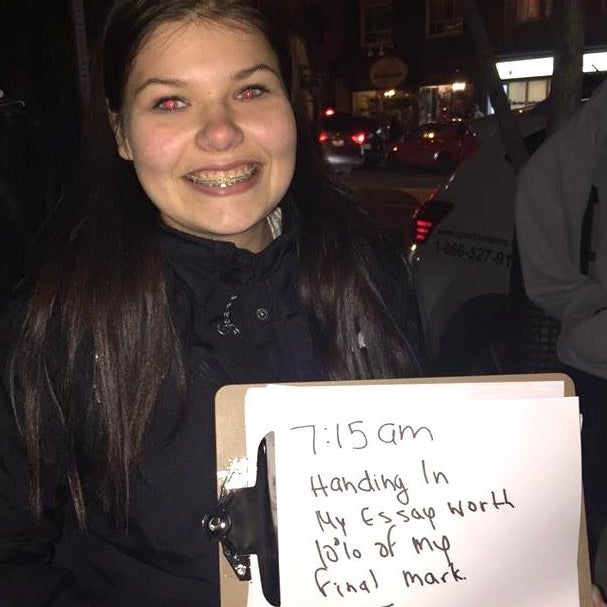 1-866-527-91
7:15 am
Handing In
My Essay worth
10% of my
final mark.